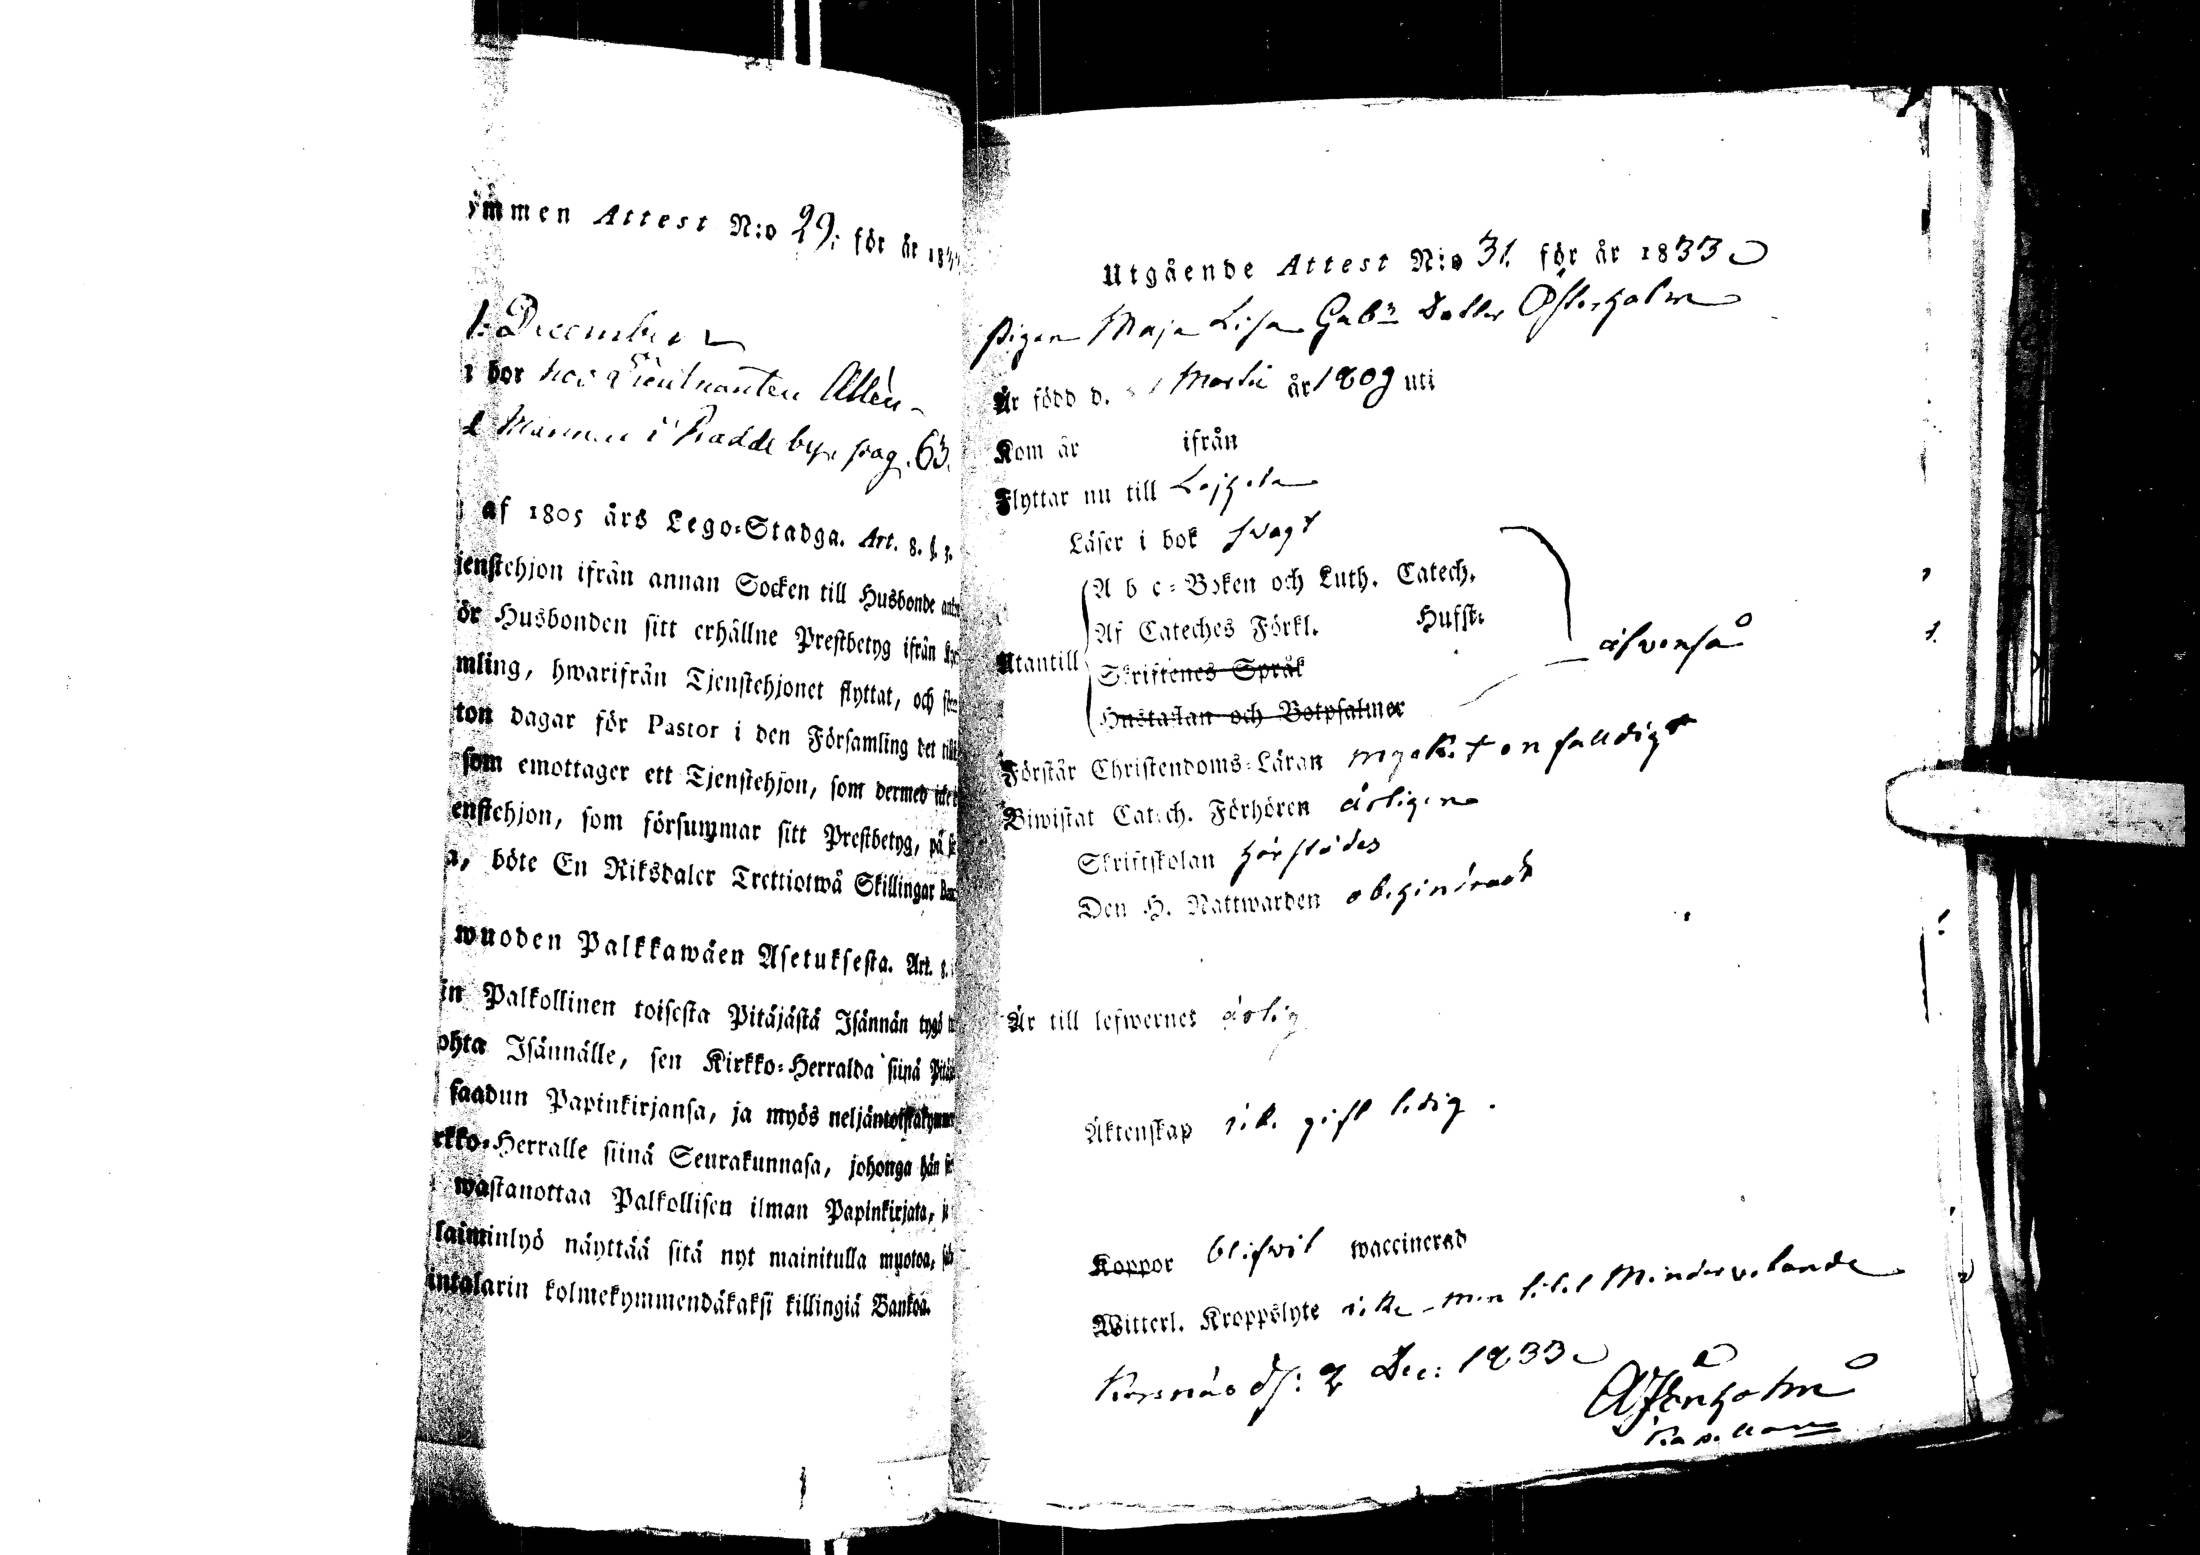 ymmen Attest N:o 29; för år 18
December
bor hos Lieutnanten Allén
i Radde by. pag. 63.
af 1805 års Lego-Stadga. Art. 8. §. 3.
jenstehjon ifrån annan Socken till Husbonde
ör Husbonden sitt erhållne Prestbetyg ifrån
mling, hwarifrån Tjenstehjonet flyttat, och
ton dagar för Pastor i den Församling det
som emottager ett Tjenstehjon, som dermed icke
enstehjon, som försummar sitt Prestbetyg, på
a, böte En Riksdaler Trettiotwå Skillingar
wuoden Palkkawäen Asetuksesta. Art. 8.
in Palkollinen toisesta Pitäjästä Isännän tygö
ohta Isännälle, sen Kirkko-Herralda siinä
saadun Papinkirjansa, ja myös neljäntoistakymmen
rkko-Herralle siinä Seurakunnasa, johonga hän
wastanottaa Palkollisen ilman Papinkirjata,
laiminlyö näyttää sitä nyt mainitulla muotoa,
intalarin kolmekymmendäkaksi killingiä Bankoa.
Utgående Attest N:o 31. för år 1833
Pigan Maja Lisa Gabrs Dotter Österholm
Är född d. Martii år 1809 uti
Kom år ifrån
Flyttar nu till Lojhela
Läser i bok swagt
A b c-Boken och Luth. Catech.
Af Cateches Förkl. Husst.
Utantill älvenså
Skriftenes Språk
Hustaflan och Botpsalmer
Förstår Christendoms-Läran mycket enfalldigt
Biwistat Catech. Förhören årligen
Skriftskolan härstädes
Den H. Nattwarden obehindrad
Är till lefwernet ärlig
Äktenskap icke gift ledig.
Koppor blifwit waccinerad
Witterl. Kroppslyte icke - men litet Mindervetande
Korsnäs d: 2 Dec: 1833